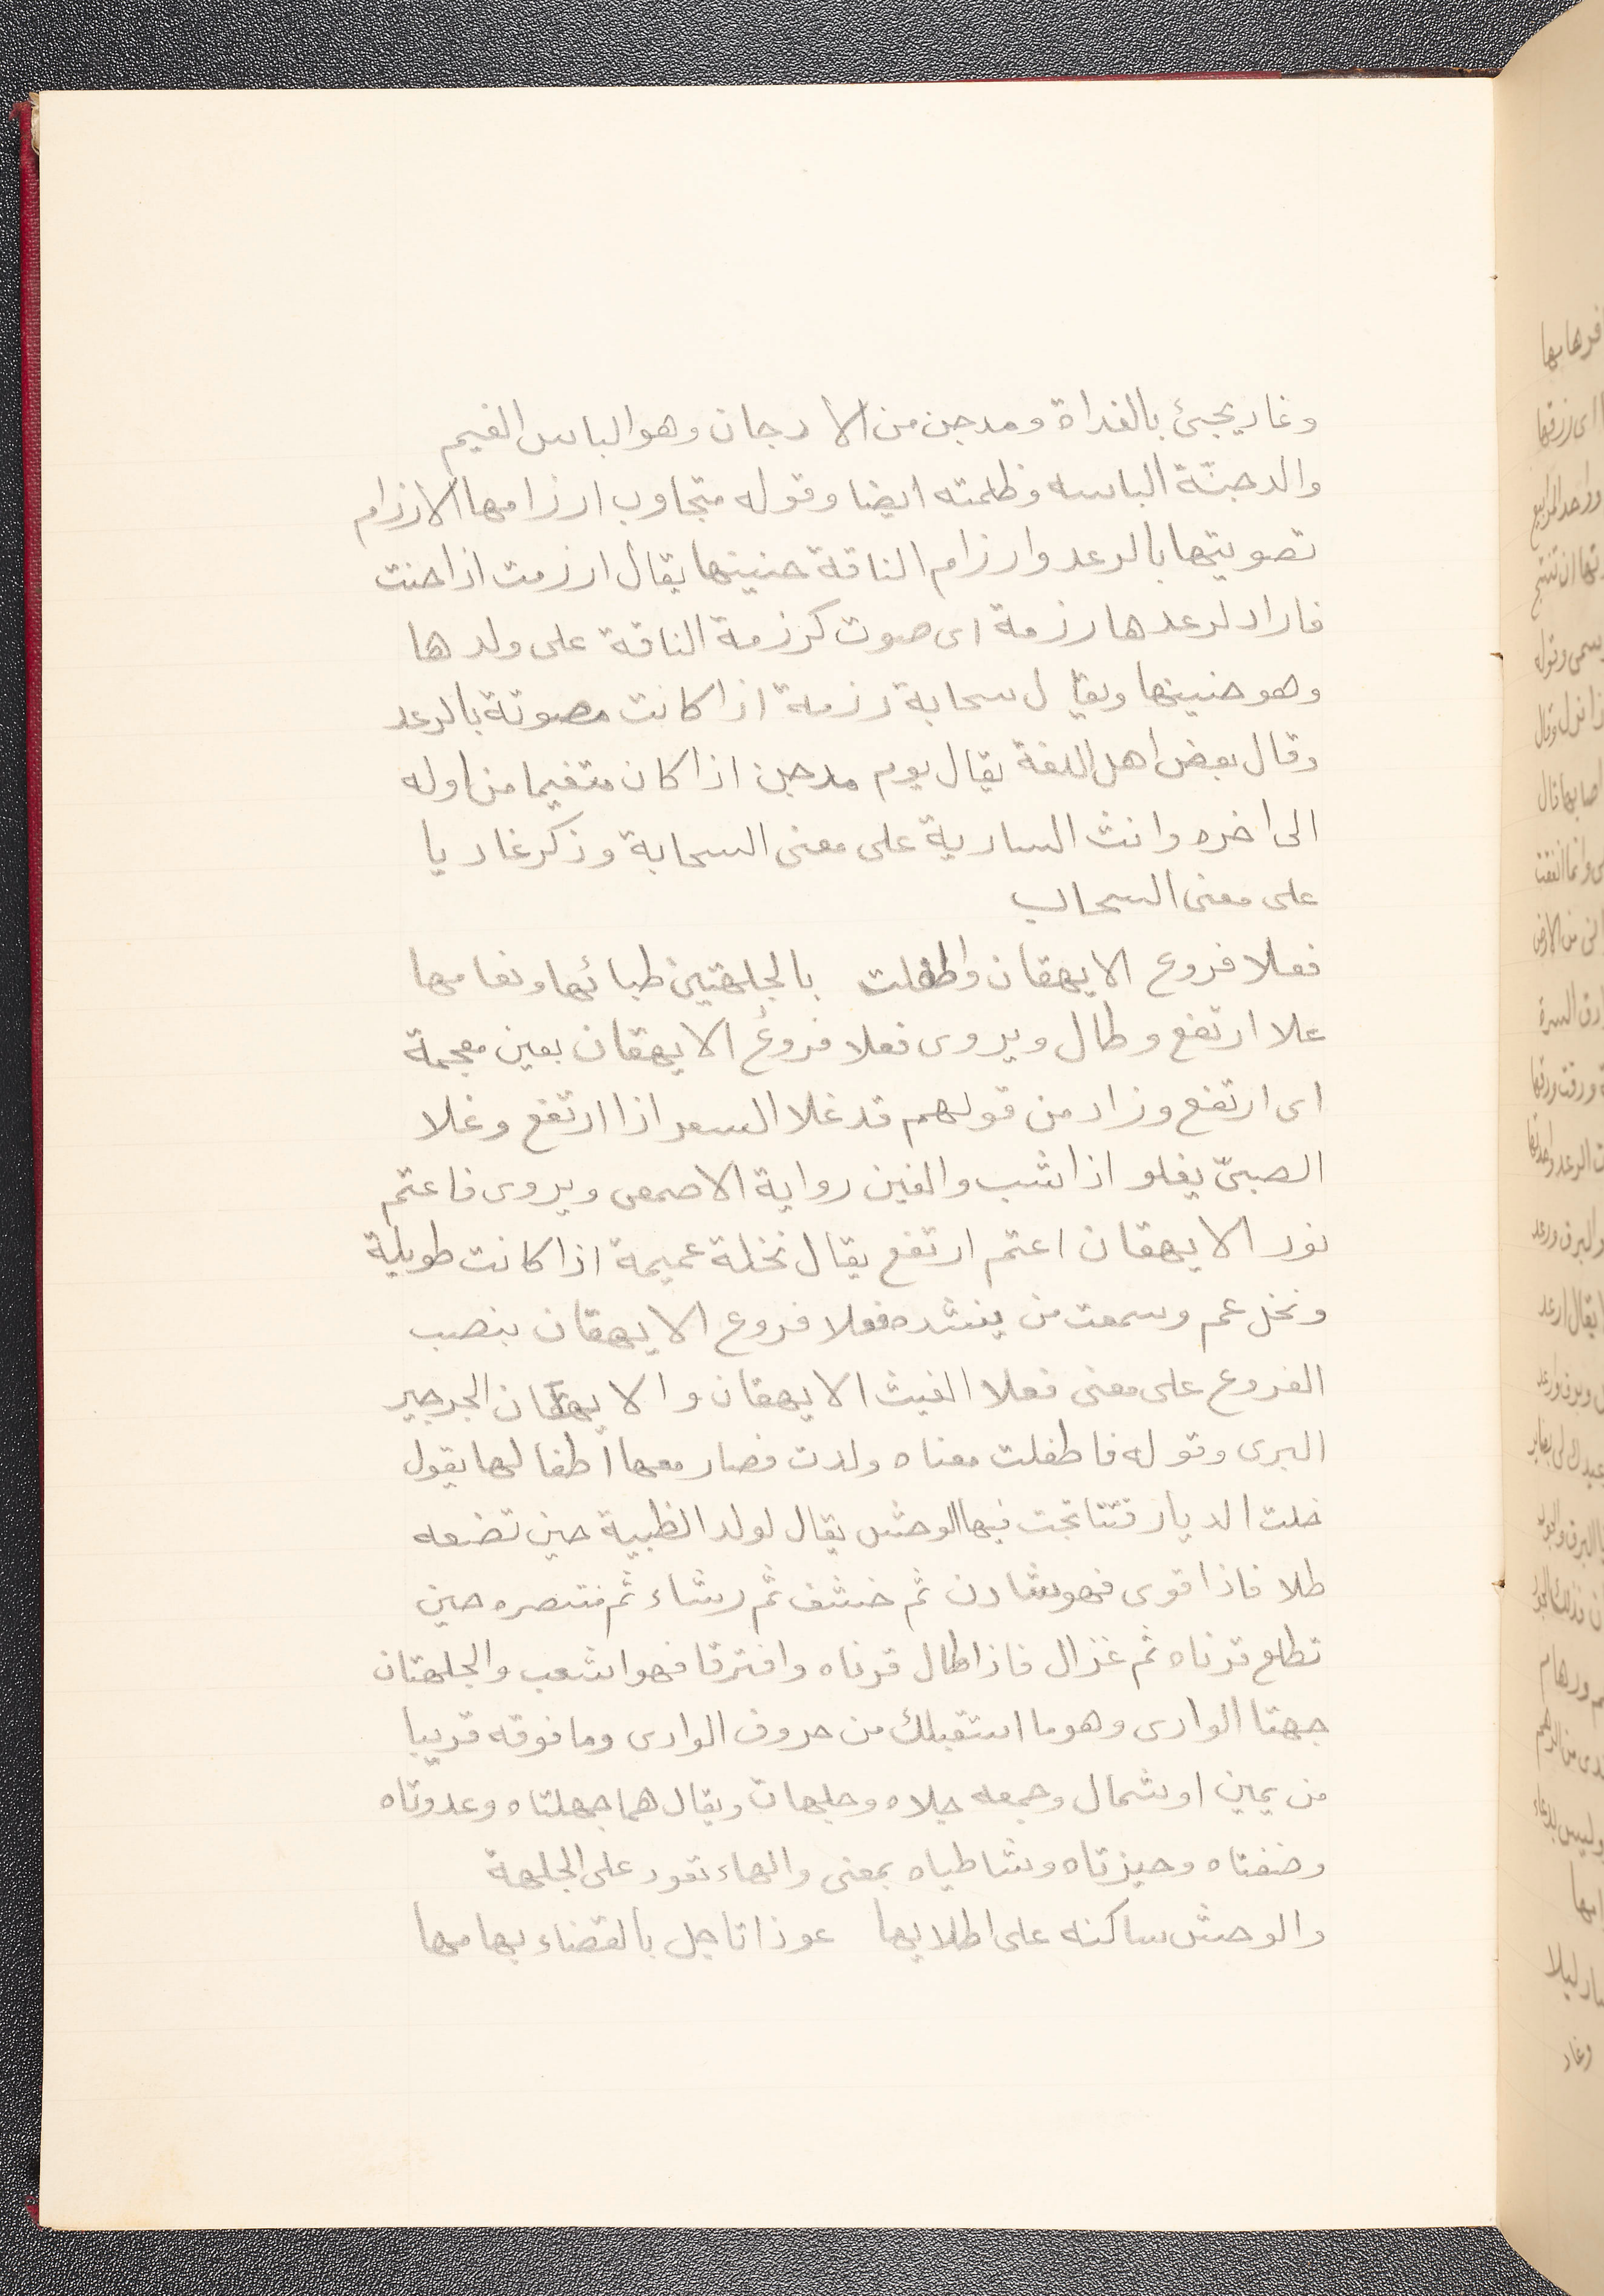 وغاد يجئ بالغداة ومدجن من الا دجان وهو الباس الغيم
والدجنّة الباسه وظلمته ايضا وقوله متجاوب ارزامها الارزام
تصويتها بالرعد وارزام الناقة حنينها يقال ارزمت اذا حنت
فاراد لرعدها رزمة اى صوت كرزمة الناقة على ولدها
وهو حنينها ويقال سحابة رزمة اذا كانت مصوتة بالرعد
وقال بعض اهل اللغة يقال يوم مدجن اذا كان متغيما من اوله
الى اخره وانث السارية على معنى السحابة وذكر غاديا
على معنى السحاب
فعلا فروع الايهقان واطفلت بالجلهتين ظبائها ونعامها
علا ارتفع وطال ويروى فغلا فروعُ الايهقان بغين معجمة
اى ارتفع وزاد من قولهم قد غلا السعر اذا ارتفع وغلا
الصبىّ يغلو اذا شب والغين رواية الاصمعى ويروى فاعتم
نور الايهقان اعتم ارتفع يقال نخلة عميمة اذا كانت طويلة
ونخل عم وسمعت من ينشده فعلا فروع الايهقان بنصب
الفروع على معنى فعلا الغيث الايهقان والايهقان الجرجير
البرى وقوله فاطفلت معناه ولدت فصار معها اطفالها يقول
خلت الديار فتناتجت فيها الوحش يقال لولد الظبية حين تضعه
طلا فاذا قوى فهو شادن ثم خشف ثم رشاء ثم منتصره حين
تطلع قرناه ثم غزال فاذا طال قرناه وافترقا فهو اشعب والجلهتان
جهتا الوادى وهو ما استقبلك من حروف الوادى وما فوقه قريبا
من يمين او شمال وجمعه جلاه وجلهات ويقال هما جهلتاه وعدوتاه
وضفتاه وحيزتاه وشاطياه بمعنى والهاء تعود على الجلهة
والوحش ساكنه على اطلايها عوذا تاجل بالفضاء بهامها